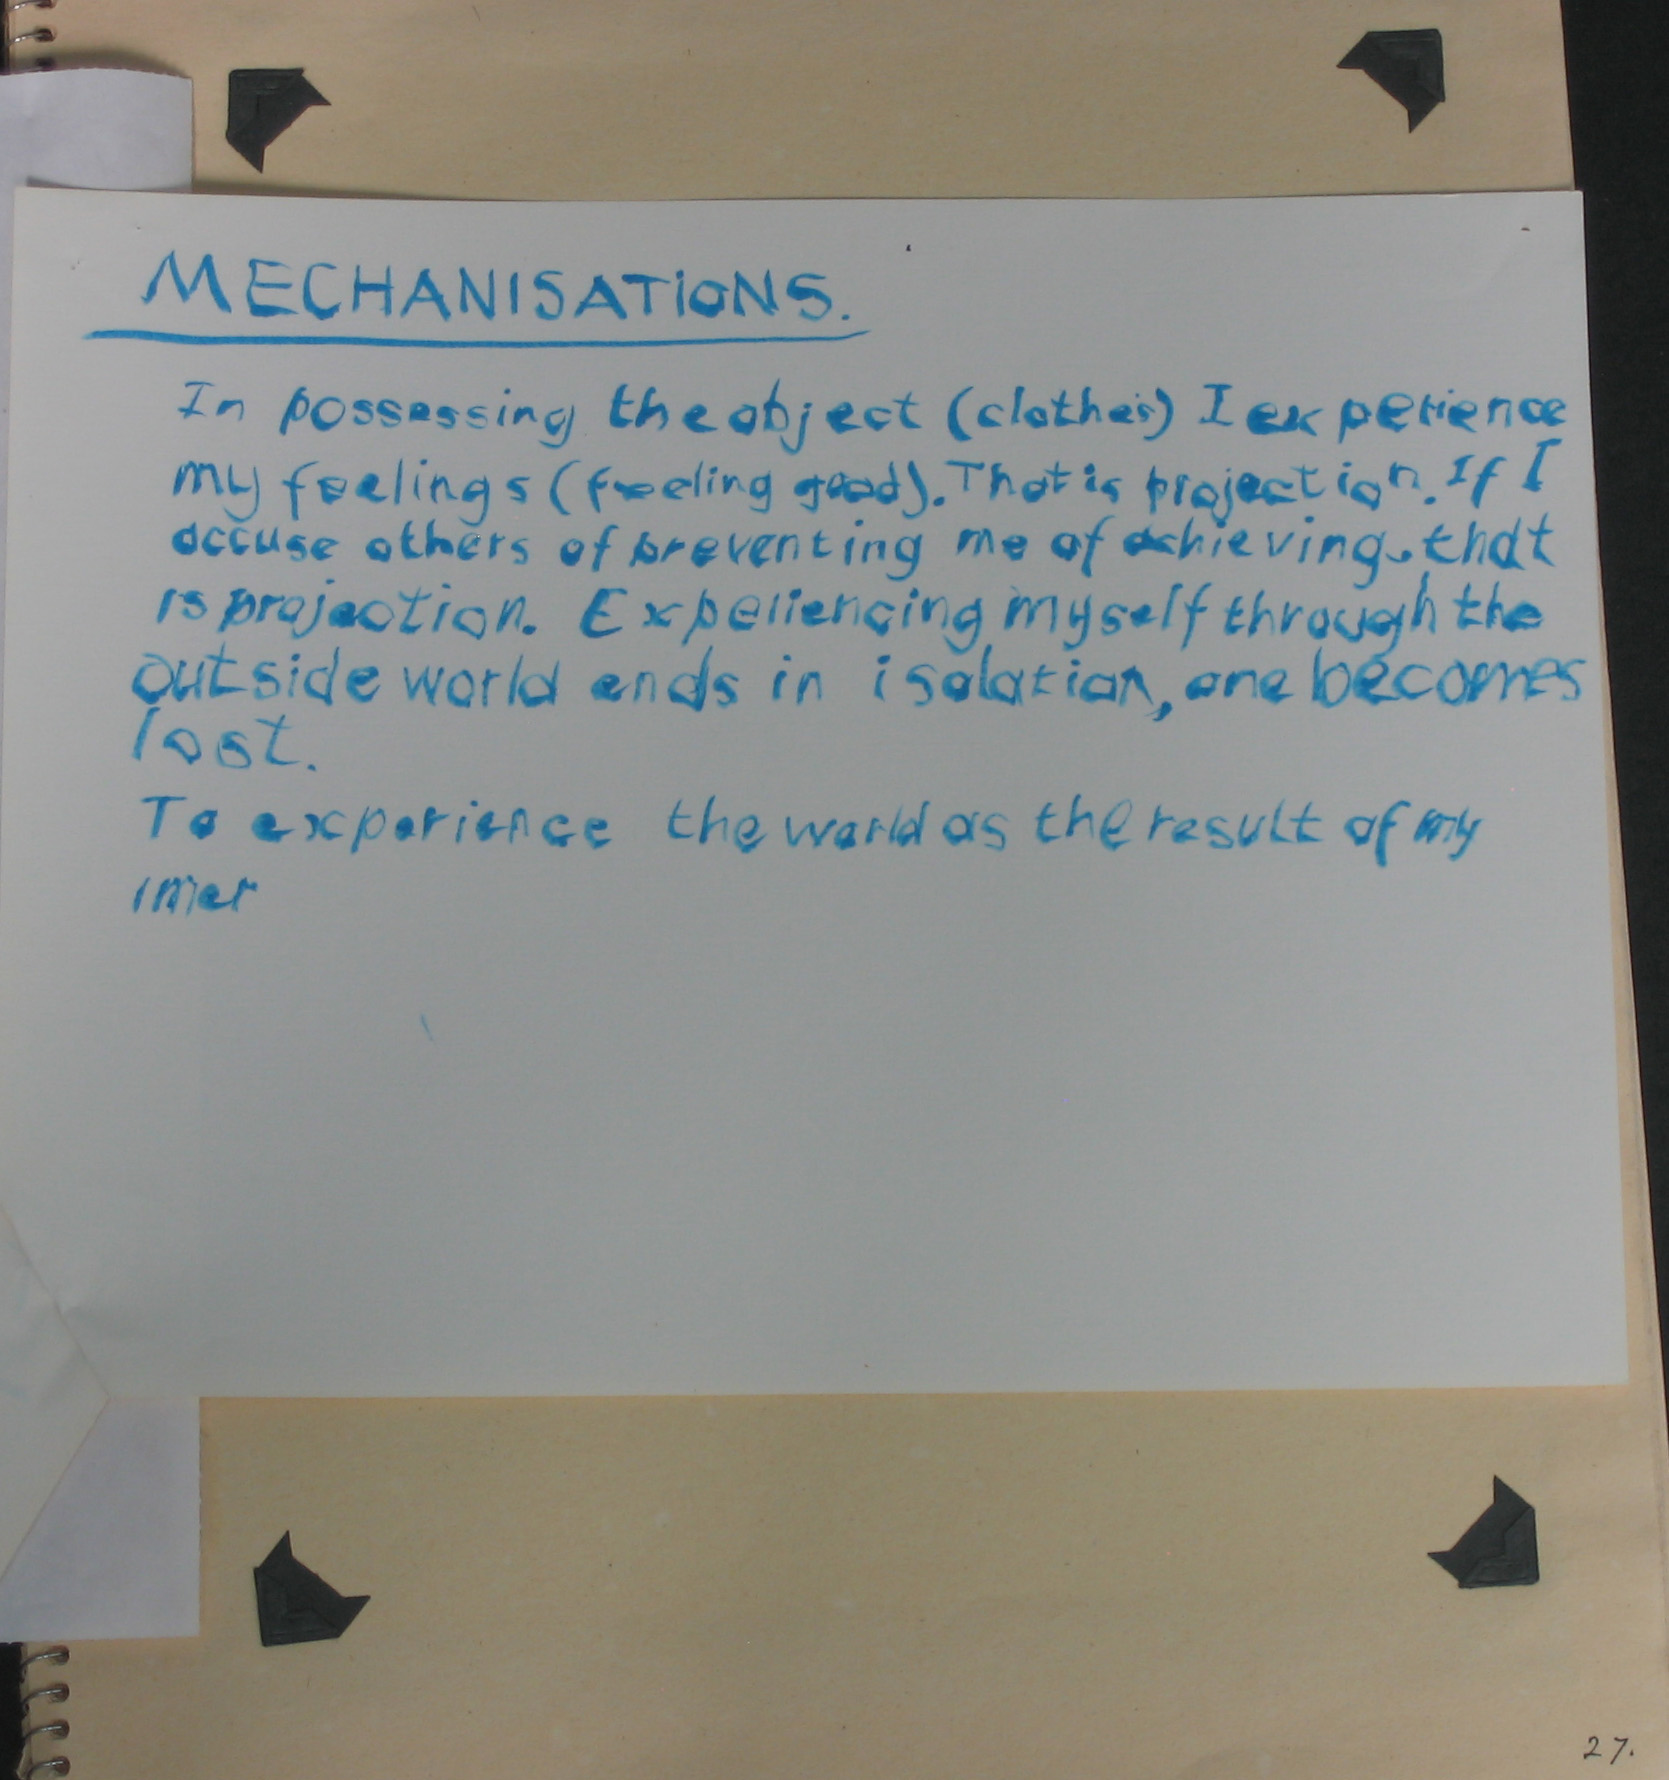 MECHANISATIONS.
In possessing the object (clothes) I experience
my feelings (feeling good). That is projection. If I
accuse others of preventing me of achieving. that
is projection. Experiencing myself through the
outside world ends in isolation, one becomes
lost.
To experience the world as the result of my
inner
27.